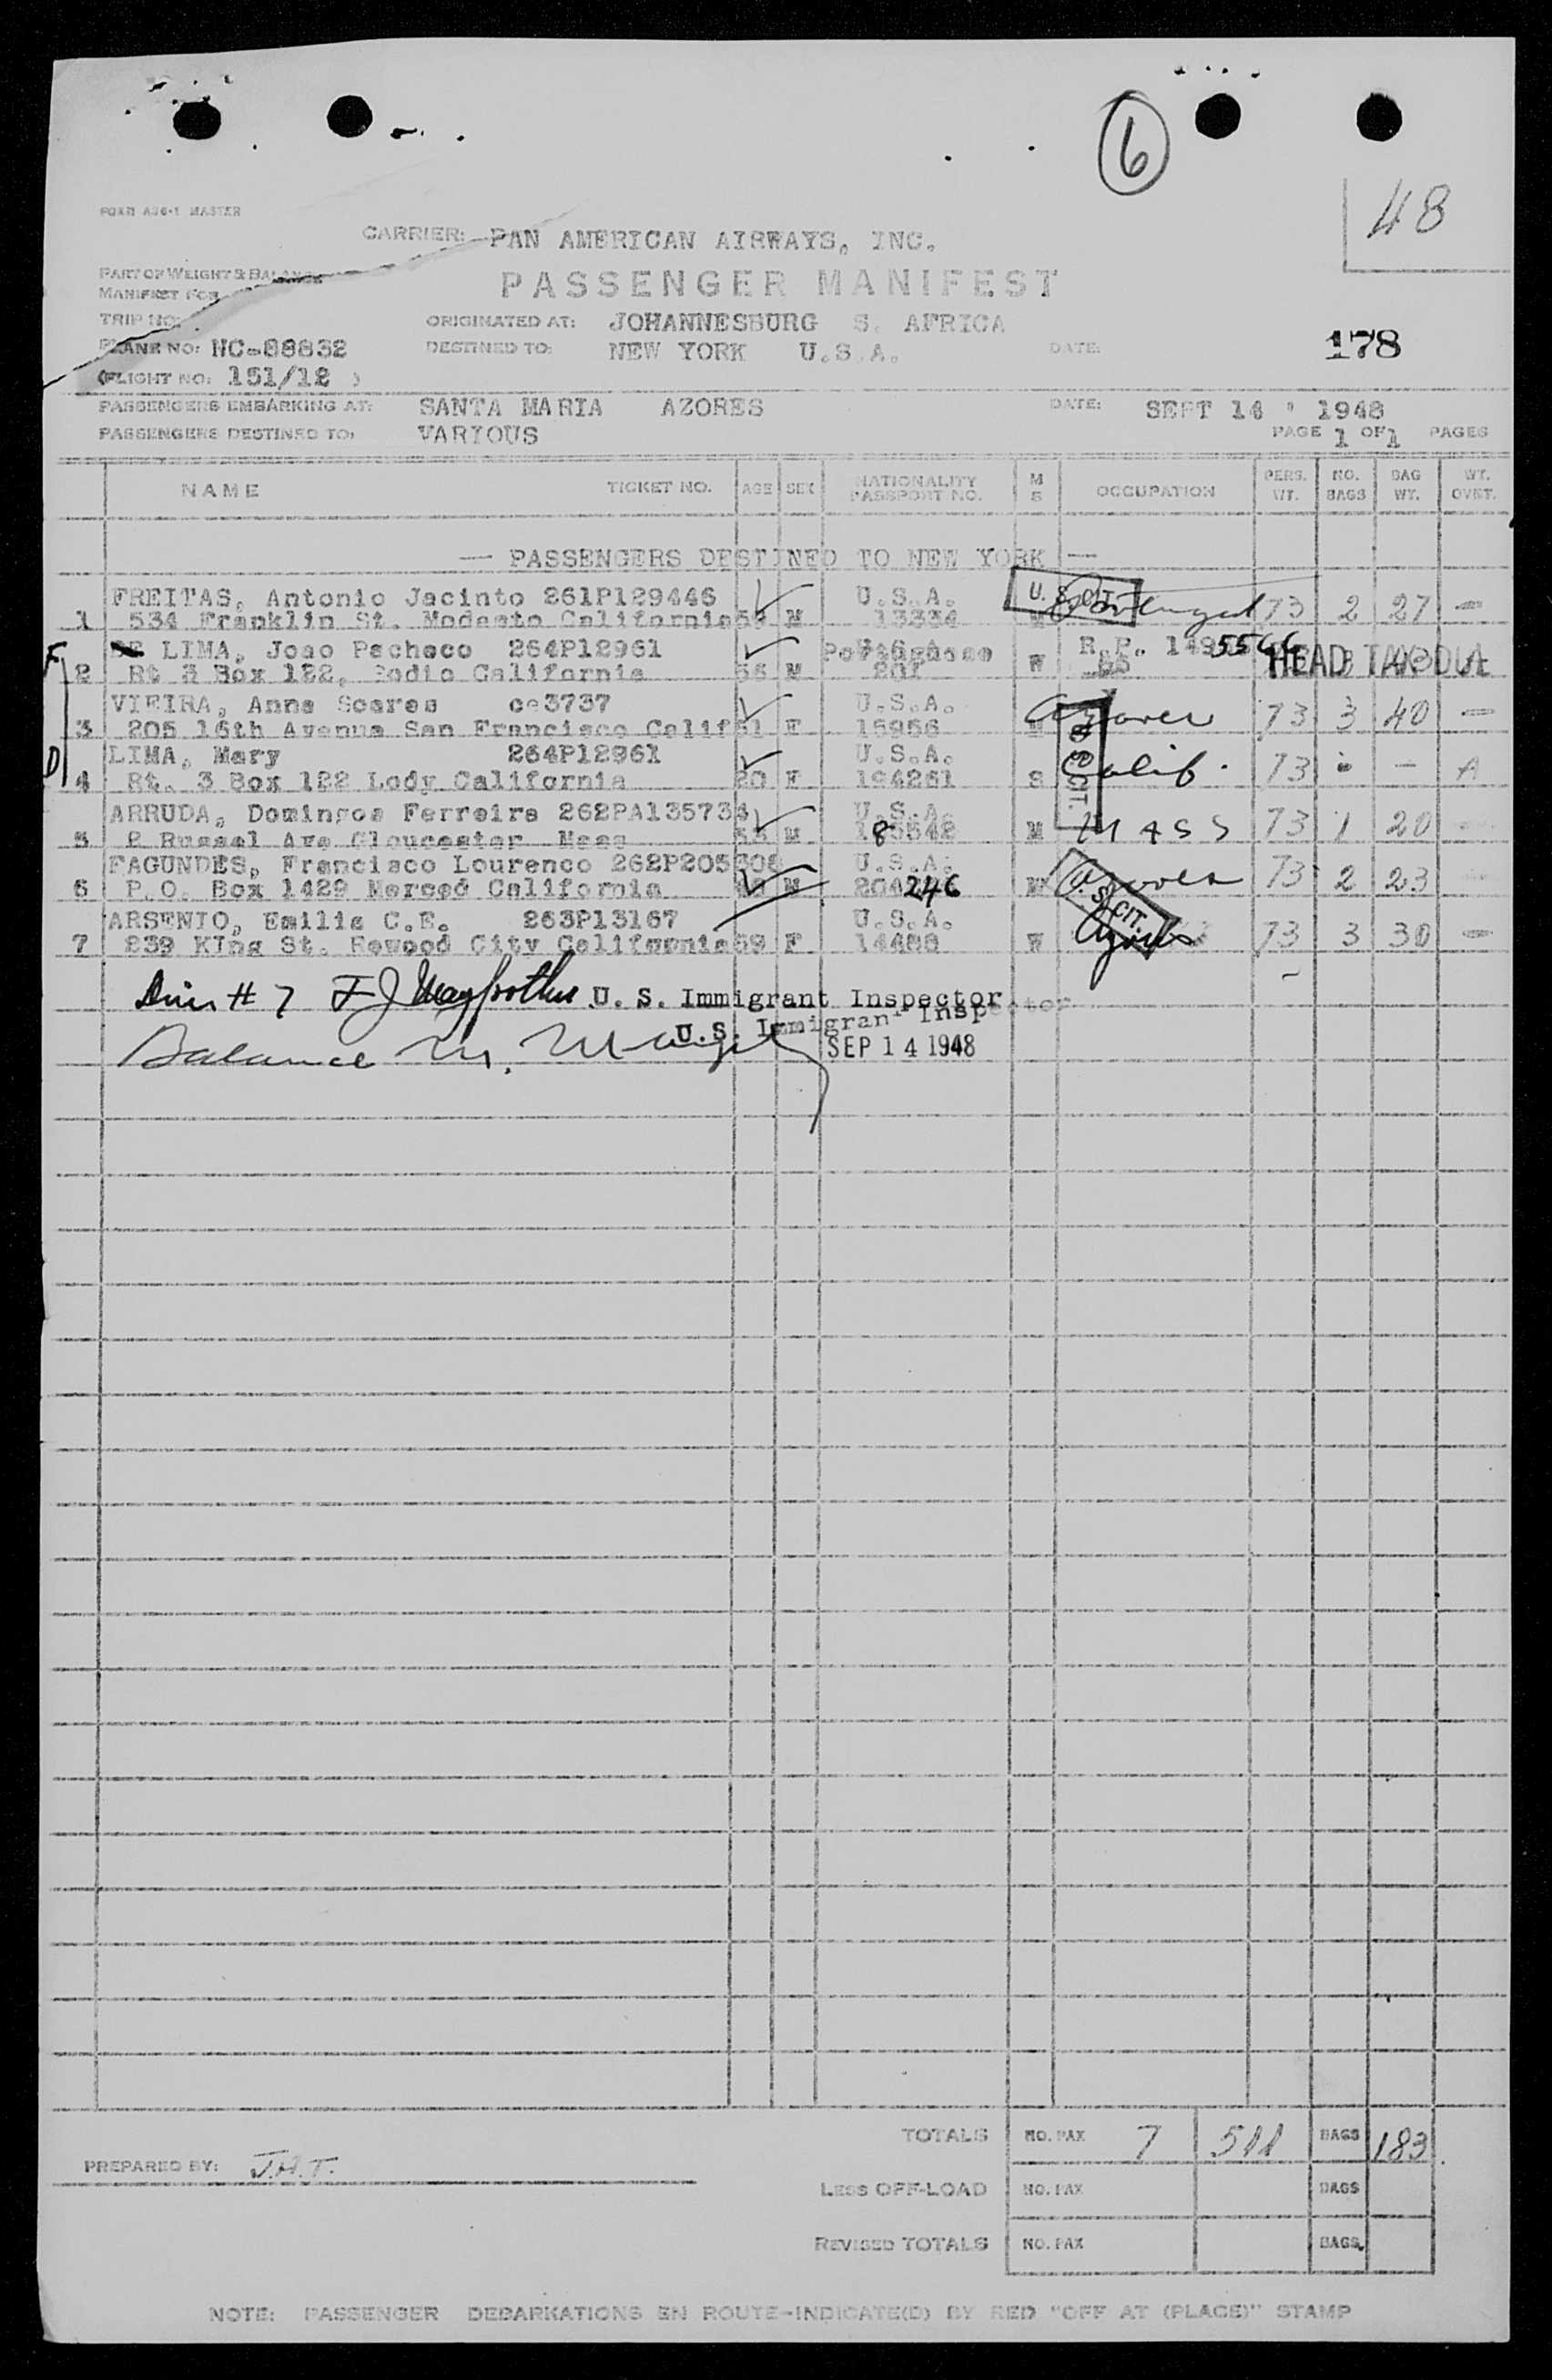 6
48
FORM A36-1 MASTER
CARRIER: PAN AMERICAN AIRWAYS, INC.
PART OF WEIGHT & BALANCE
MANIFEST FOR
PASSENGER MANIFEST
TRIP NO:
ORIGINATED AT: JOHANNESBURG S. AFRICA
PLANE NO: NC-88832
DESTINED TO: NEW YORK U.S.A.
DATE:
178
(FLIGHT NO: 151/12 )
PASSENGERS EMBARKING AT: SANTA MARIA AZORES DATE: SEPT 14 , 1948
PASSENGERS DESTINED TO: VARIOUS PAGE 1 OF 1 PAGES
NAME TICKET NO. AGE SEX NATIONALITY PASSPORT NO. M S OCCUPATION PERS. WT. NO. BAGS BAG WT. WT. OVET.
— PASSENGERS DESTINED TO NEW YORK —
FREITAS, Antonio Jacinto 261P129446 U.S.A. U. S. CIT. Portugal 73 2 27 —
1 534 Franklin St. Modesto California 59 M 13334 M
F DE LIMA, Joao Pacheco 264P12961 Portuguese R.P. 149 5566 HEAD TAX DUE
2 Rt 3 Box 122, California 55 M 207 W
VIEIRA, Anna Soares ce3737 U.S.A. Azores 73 3 40 —
3 205 16th Avenue San Francisco Calif 51 F 15956
LIMA, Mary 264P12961 U.S.A. Calif. 73 - — A
D 4 Rt. 3 Box 122 Lody California 20 F 194261 S
ARRUDA, Domingos Ferreira 262PA135734 U.S.A. MASS 73 1 20
5 2 Russel Ave Gloucester Mass 55 M 185542 M
FAGUNDES, Francisco Lourenco 262P205308 U.S.A. Azores 73 2 23
6 P.O. Box 1429 Merced California M 246 M U. S. CIT.
ARSENIO, Emilia C.E. 263P13167 U.S.A. Azores 73 3 30 —
7 239 KIng St. Rewood City California 59 F 14488 W
# 7 F J U. S. Immigrant Inspector
U.S. Immigrant Inspector
Balance M. SEP 14 1948
TOTALS NO. PAX 7 511 BAGS 183
PREPARED BY: J.A.T.
LESS OFF-LOAD NO. PAX BAGS
REVISED TOTALS NO. PAX BAGS
NOTE: PASSENGER DEBARKATIONS EN ROUTE-INDICATE(D) BY RED "OFF AT (PLACE)" STAMP